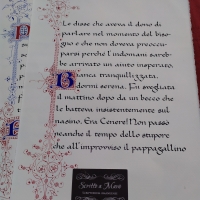 Le disse che aveva il dono di
parlare nel momento del biso-
gno e che non doveva preoccu-
parsi perché l'indomani sareb-
be arrivato un aiuto insperato.
Bianca tranquillizzata,
dormì serena. Fu svegliata
il mattino dopo da un becco che
le batteva insistentemente sul
naso. Era Cenere! Non passò
neanche il tempo dello stupore
che all'improvviso il pappagallino
Scritto a Mano